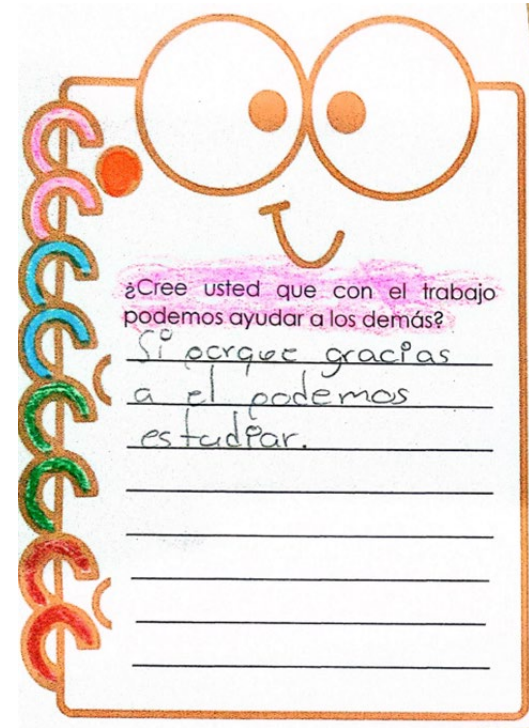 ¿Cree usted que con el trabajo
podemos ayudar a los demás?
Si porque gracias
a el podemos
estudiar.